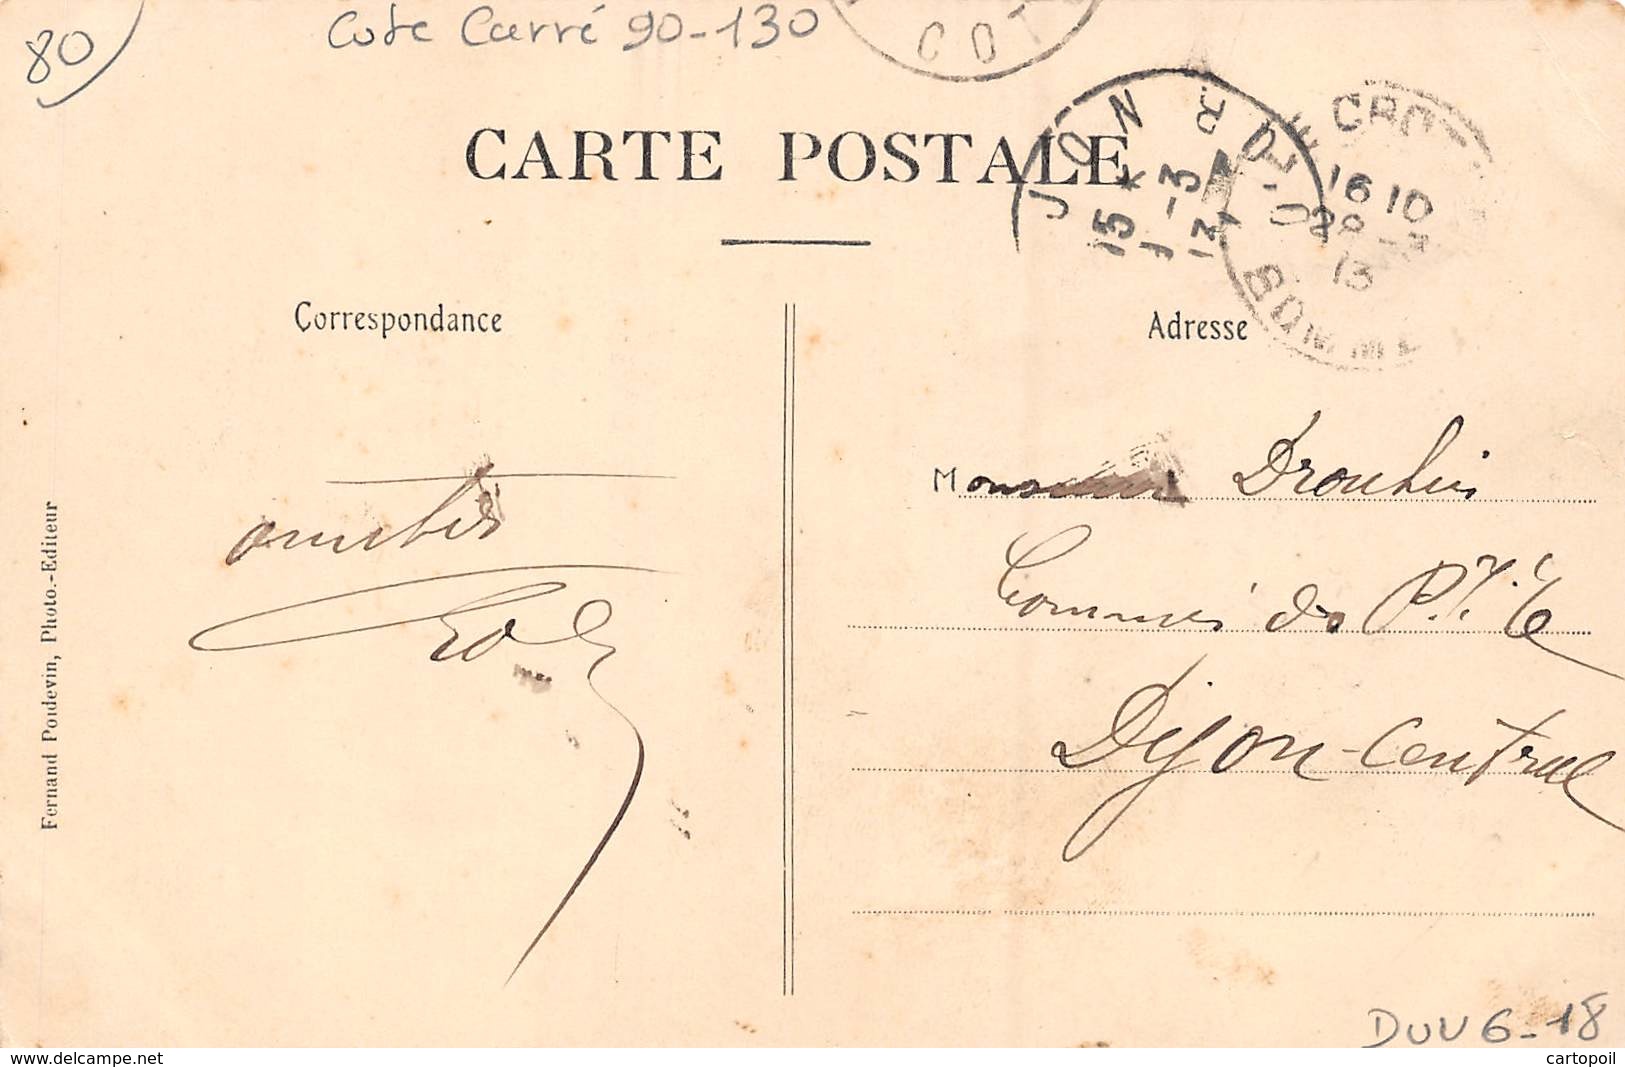 80
Cote Carré 90-130
COT
CARTE POSTALE
DIJON R.P.
COTE D'OR
15 *
1 -3
13
LE CROTOY
16 10
28 -
13
SOMME
Correspondance
Adresse
amitiés
Monsieur Drouhin
Commis des P.T.T.
Dijon-Central
Fernand Poidevin, Photo.-Editeur
DUU6-18
cartopoil